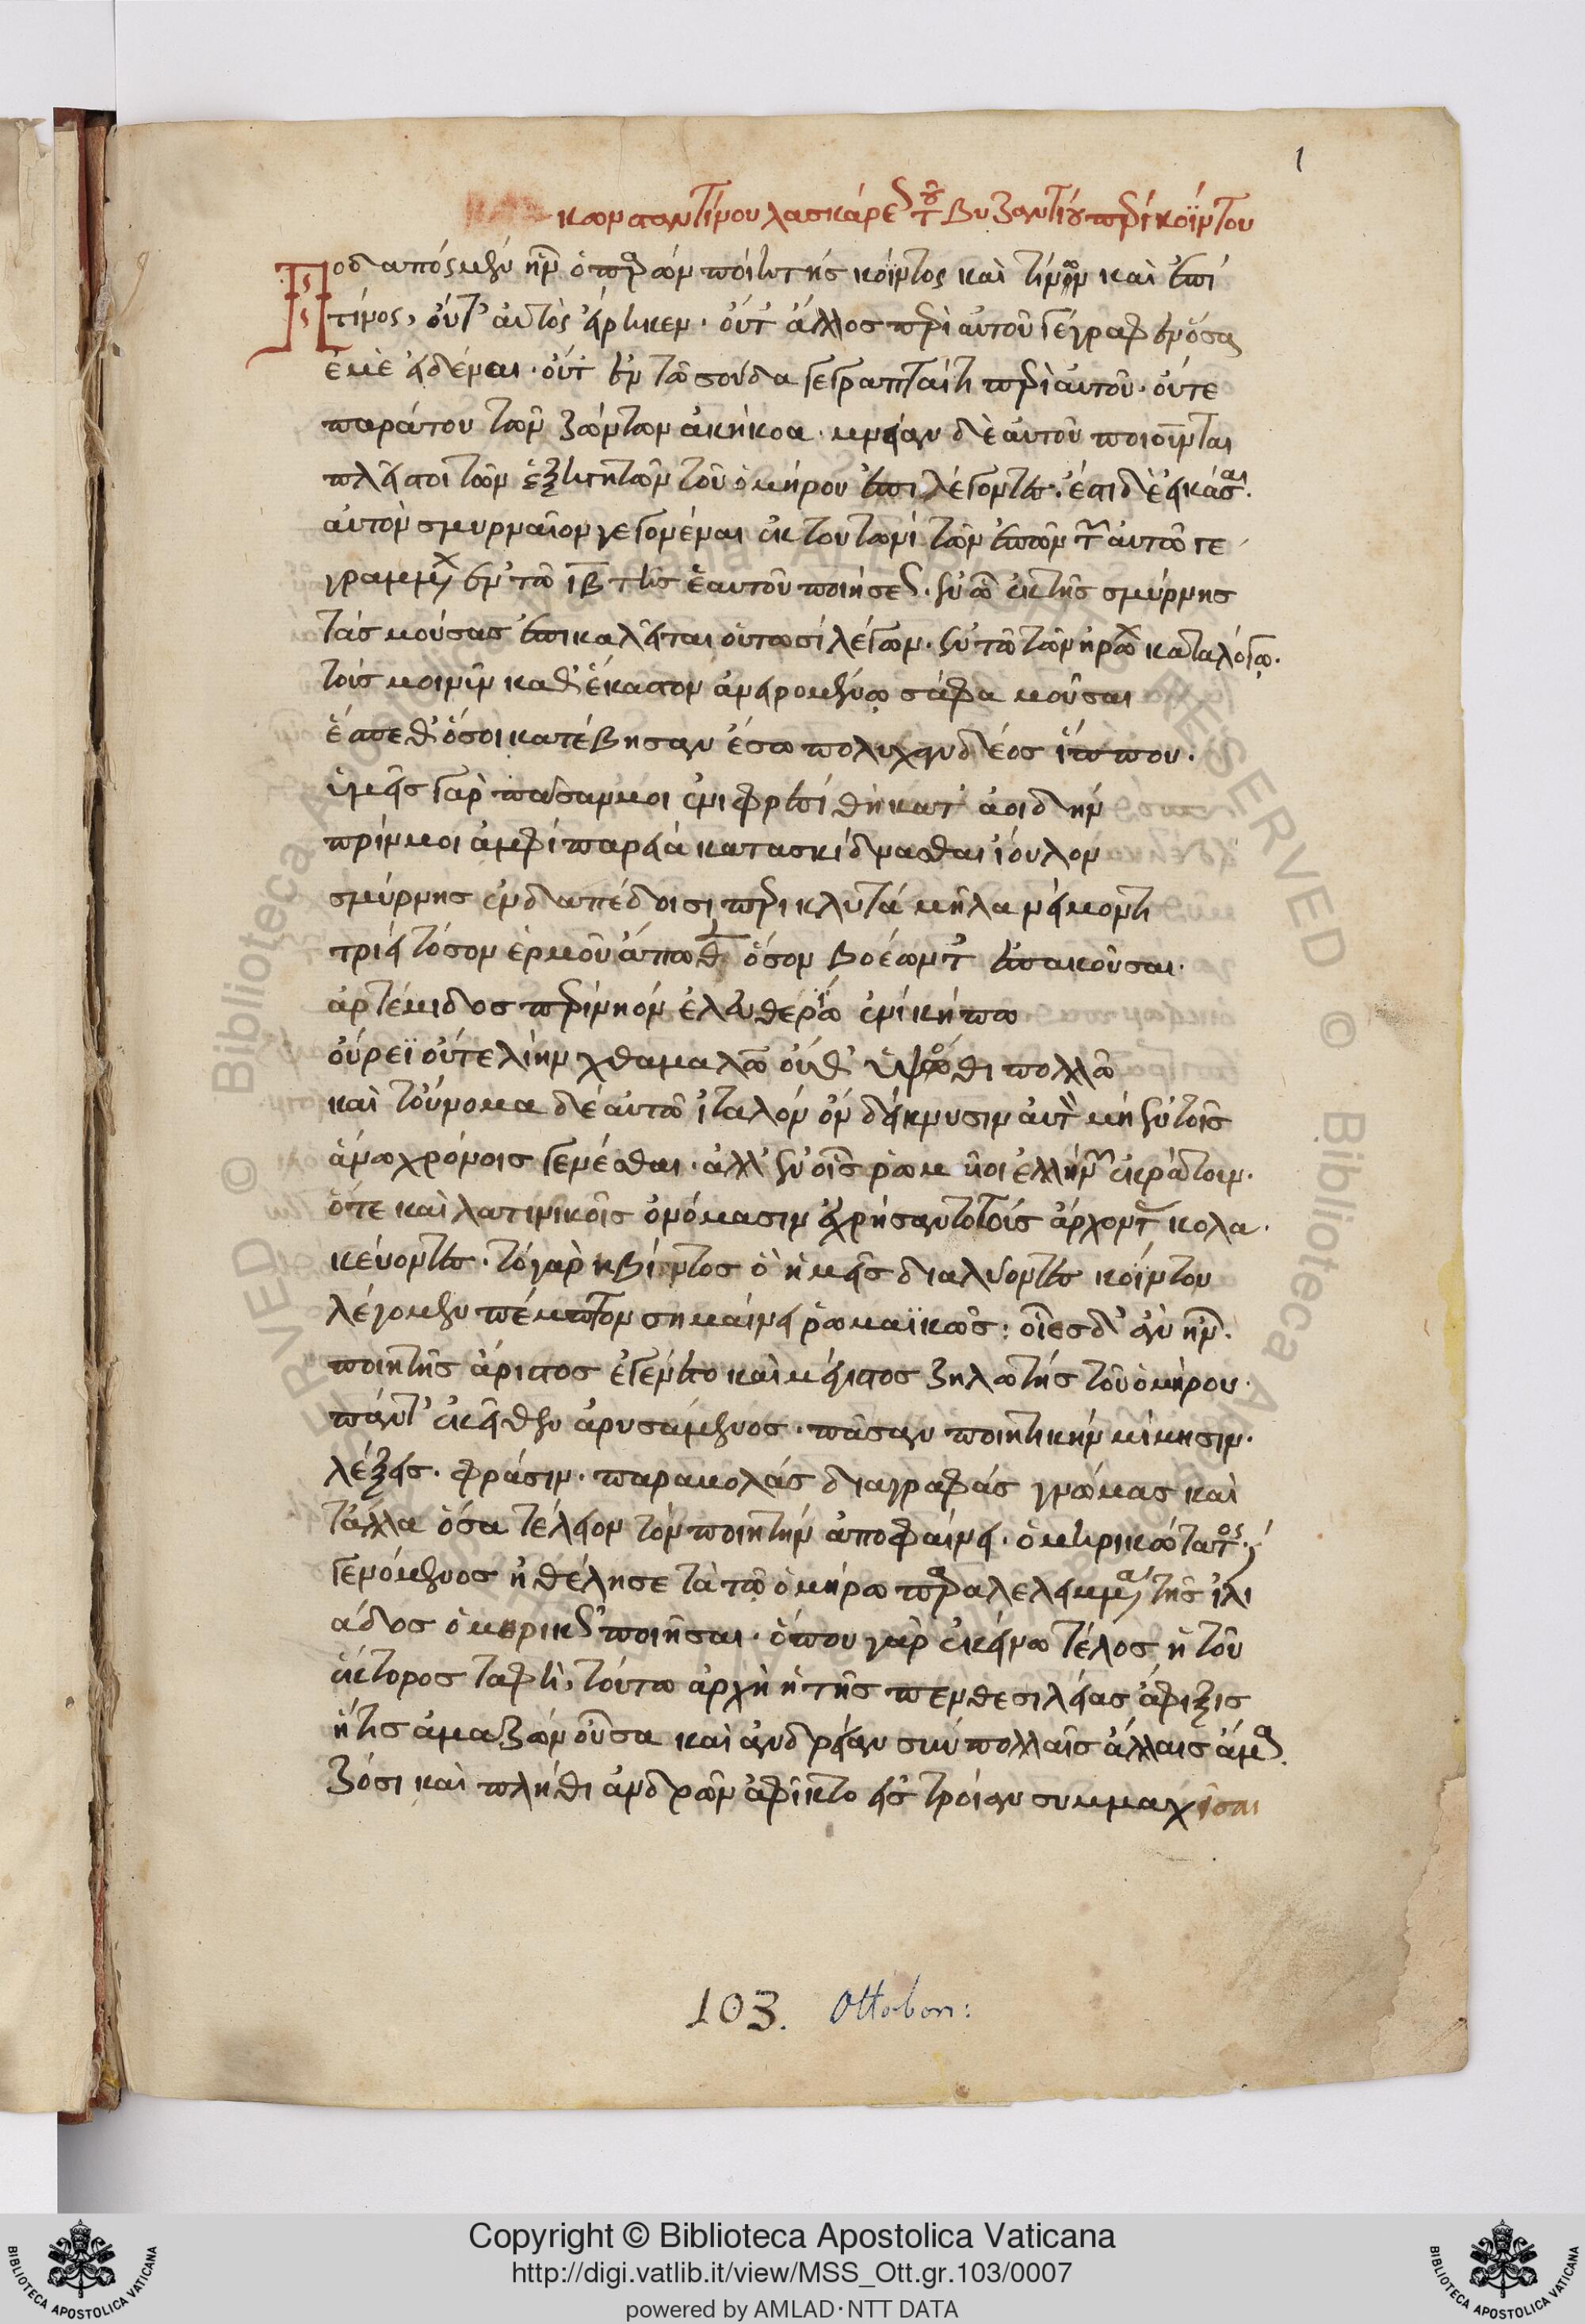 1
κωνσταντίνου λασκάρεως τοῦ βυζαντίου περὶ κοΐντου
Ποδαπὸς μὲν ἦν ὁ παρὼν ποιητὴς κόϊντος καὶ τίνων καὶ ἐπὶ
τίνος, οὔτ' αὐτὸς εἴρηκεν. οὔτ' ἄλλος περὶ αὐτοῦ γέγραφεν ὅσα
ἐμὲ εἰδέναι. οὔτ' ἐν τῶ σούδα γέγραπταί τι περὶ αὐτοῦ. οὔτε
παρά του τῶν ζώντων ἀκήκοα. μνείαν δὲ αὐτοῦ ποιοῦνται
πλεῖστοι τῶν ἐξηγητῶν τοῦ ὁμήρου ἐπιλέγοντες. ἔστι δὲ εἰκάσαι
αὐτὸν σμυρναῖον γεγονέναι ἐκ τουτωνὶ τῶν ἐπῶν τῶν αὐτῶ γε
γραμμένων ἐν τῶ ιβ της ἑαυτοῦ ποιήσεως. ἐν ὧ ἐκ τῆς σμύρνης
τὰς μούσας ἐπικαλεῖται οὑτωσὶ λέγων. ἐν τῶ τῶν ἡρώων καταλόγω.
τούς μοι νῦν καθ' ἕκαστον ἀνειρομένω σάφα μοῦσαι
ἔσπεθ' ὅσοι κατέβησαν ἔσω πολυχανδέος ἵππου.
ὑμεῖς γὰρ πᾶσάν μοι ἐνὶ φρεσὶ θήκατ' ἀοιδὴν
πρίν μοι ἀμφὶ παρειὰ κατασκίδνασθαι ἴουλον
σμύρνης ἐν δαπέδοισι περικλυτὰ μῆλα νέμοντι
τρὶς τόσον ἑρμοῦ ἄπωθεν ὅσον βοέωντ' ἐπακοῦσαι.
ἀρτέμιδος περὶ νηὸν ἐλευθερίω ἐνὶ κήπω
οὔρεϊ οὔτε λίην χθαμαλῶ οὔθ' ὑψόθι πολλῶ
καὶ τοὔνομα δὲ αὐτῶ ἰταλὸν ὂν δείκνυσιν αὐτὸν μὴ ἐν τοῖς
ἄνω χρόνοις γενέσθαι. ἀλλ' ἐν οἷς ῥωμαῖοι ἑλλήνων ἐκράτουν.
ὅτε καὶ λατινικοῖς ὀνόμασιν ἐχρήσαντο τοῖς ἄρχουσι κολα
κεύοντες. τὸ γὰρ κβίντος ὃ ἡμεῖς διαλύοντες κόϊντον
λέγομεν πέμπτον σημαίνει ῥωμαϊκῶς: οἷος δ' ἂν ἦν.
ποιητὴς ἄριστος ἐγένετο καὶ μέγιστος ζηλωτὴς τοῦ ὁμήρου.
πάντ' ἐκεῖθεν ἀρυσάμενος. πᾶσαν ποιητικὴν μίμησιν.
λέξεις. φράσιν. παραβολάς διαγραφάς γνώμας καὶ
τἆλλα ὅσα τέλειον τὸν ποιητὴν ἀποφαίνει. ὁμηρικώτατος
γενόμενος ἠθέλησε τὰ τῶ ὁμήρω παραλελειμμένα τῆς ἰλι
άδος ὁμηρικῶς ποιῆσαι. ὅπου γὰρ ἐκείνω τέλος ἡ τοῦ
ἕκτορος ταφὴ, τούτω ἀρχὴ ἡ τῆς πενθεσιλείας ἄφιξις
ἥτις ἀμαζὼν οὖσα καὶ ἀνδρείαν σὺν πολλαῖς ἄλλαις ἀμα
ζόσι καὶ πλήθει ἀνδρῶν ἀφίκετο εἰς τροίαν συμμαχῆσαι
103. Ottobon:
Copyright © Biblioteca Apostolica Vaticana
http://digi.vatlib.it/view/MSS_Ott.gr.103/0007
powered by AMLAD·NTT DATA